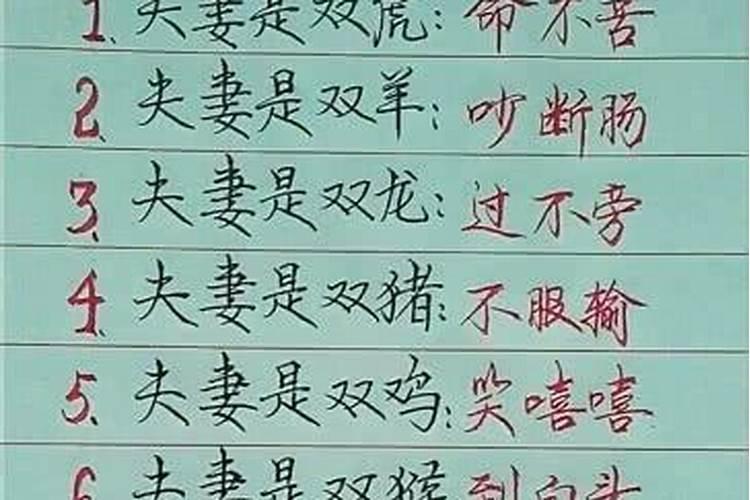 1、夫妻是双虎：命不苦
2、夫妻是双羊：吵断肠
3、夫妻是双龙：过不旁
4、夫妻是双猪：不服输
5、夫妻是双鸡：笑嘻嘻
6、夫妻是双猴 到白头